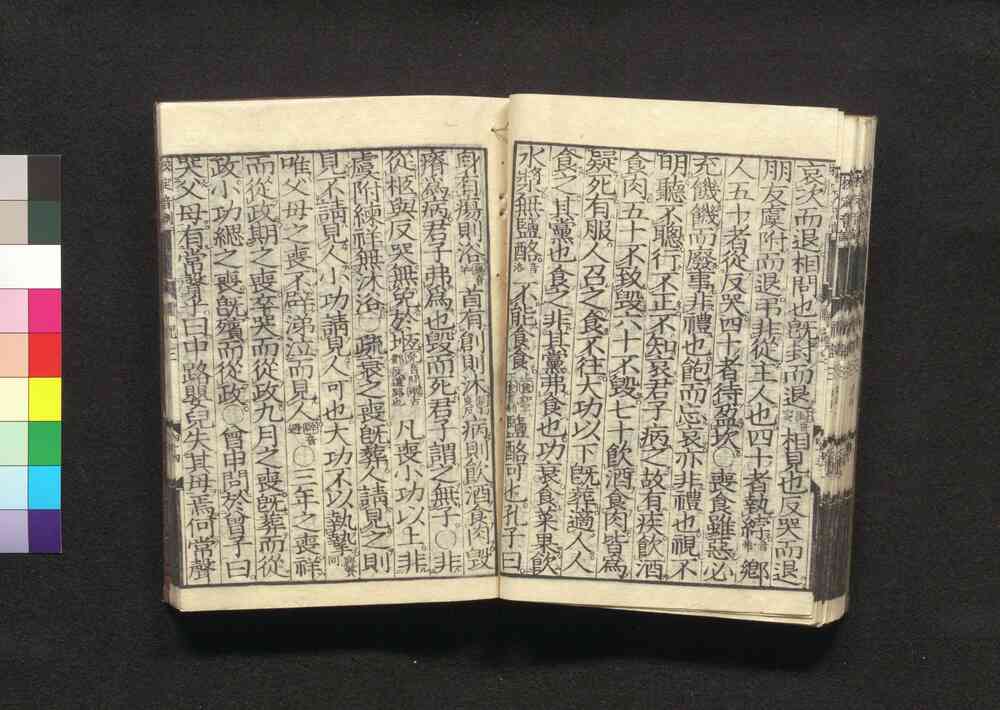 哀次而退相問也既封而退相見也反哭而退
朋友虞附而退弔非從主人也四十者執綍鄉
人五十者從反哭四十者待盈坎○喪食雖惡必
充饑饑而廢事非禮也飽而忘哀亦非禮也視不
明聽不聰行不正不知哀君子病之故有疾飲酒
食肉五十不致毀六十不毀七十飲酒食肉皆為
疑死有服人召之食不往大功以下既葬適人人
食之其黨也食之非其黨弗食也功衰食菜果飲
水漿無鹽酪音洛不能食食鹽酪可也孔子曰
身有瘍則浴首有創則沐病則飲酒食肉毀
瘠為病君子弗為也毀而死君子謂之無子○非
從柩與反哭無免於堩凡喪小功以上非
虞附練祥無沐浴○疏衰之喪既葬人請見之則
見不請見人小功請見人可也大功不以執摯
唯父母之喪不辟涕泣而見人辟音避○三年之喪祥
而從政期之喪卒哭而從政九月之喪既葬而從
政小功緦之喪既殯而從政○曾申問於曾子曰
哭父母有常聲乎曰中路嬰兒失其母焉何常聲